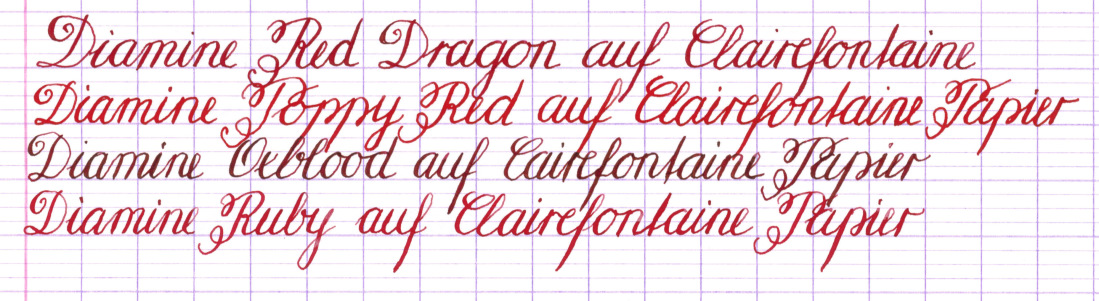 Diamine Red Dragon auf Clairefontaine
Diamine Poppy Red auf Clairefontaine Papier
Diamine Oxblood auf Cairefontaine Papier
Diamine Ruby auf Clairefontaine Papier